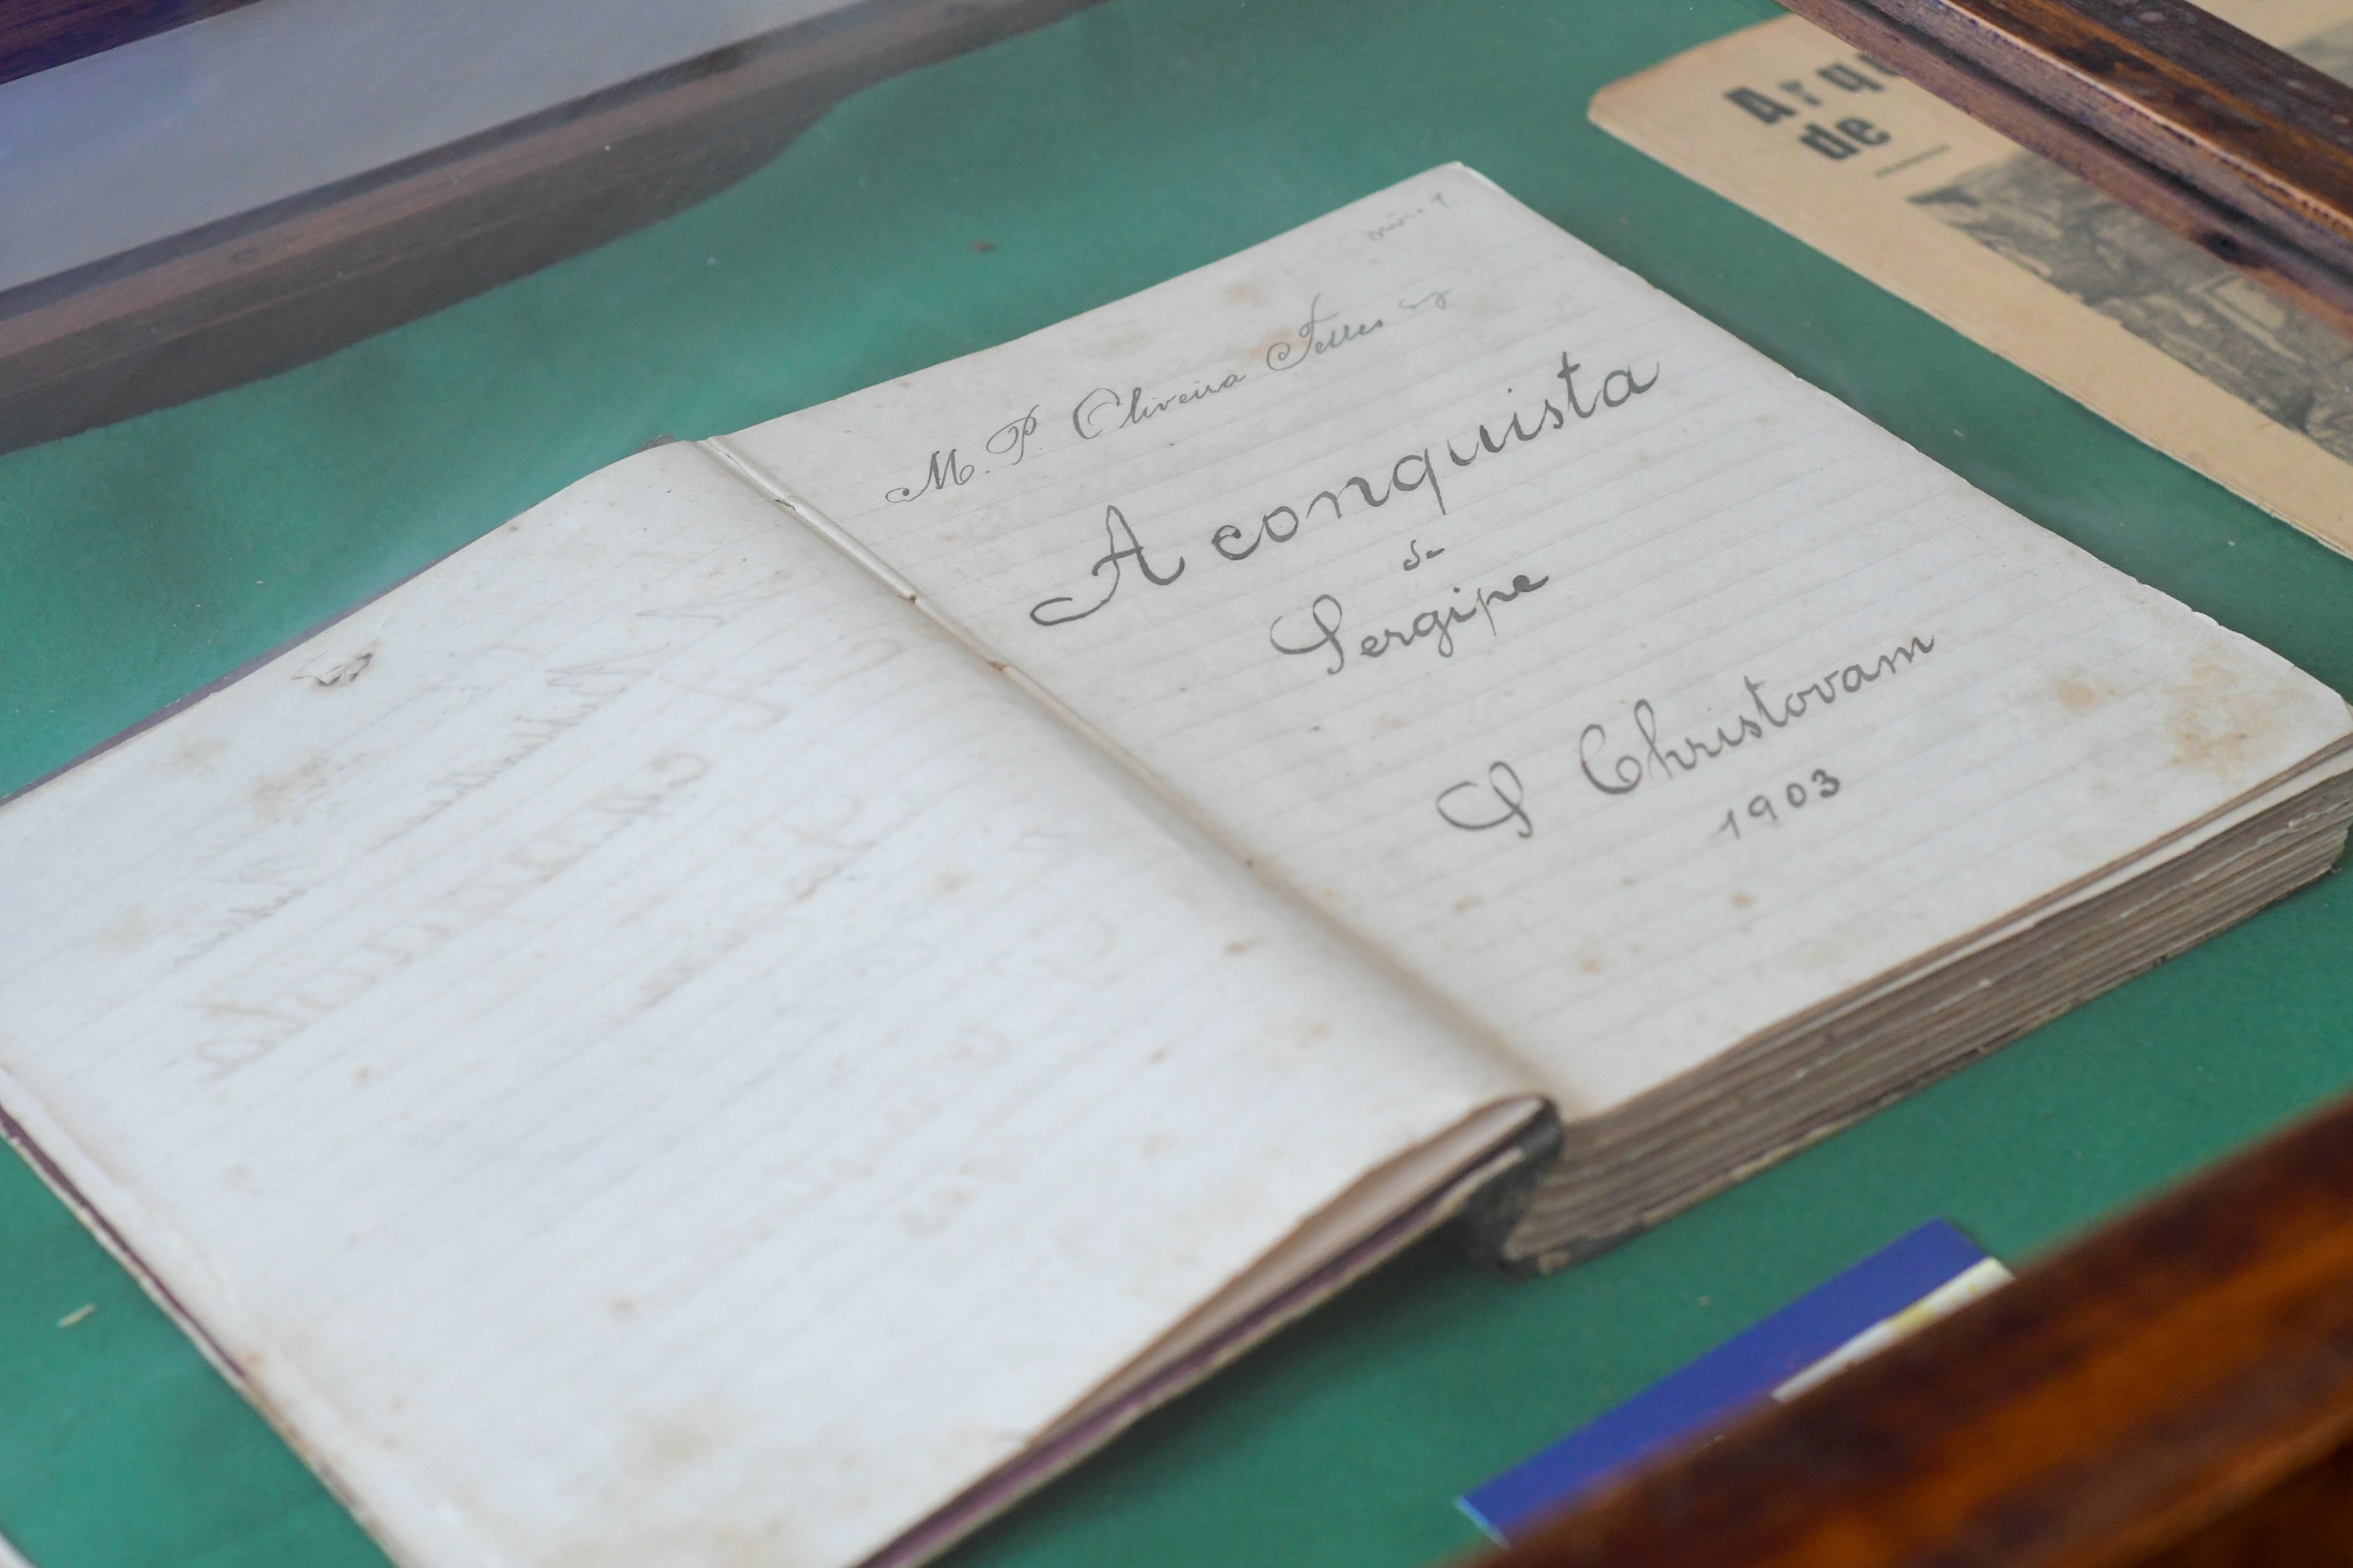 M. P. Oliveira Telles
A conquista
de
Sergipe
S Christovam
1903
Arqu
de